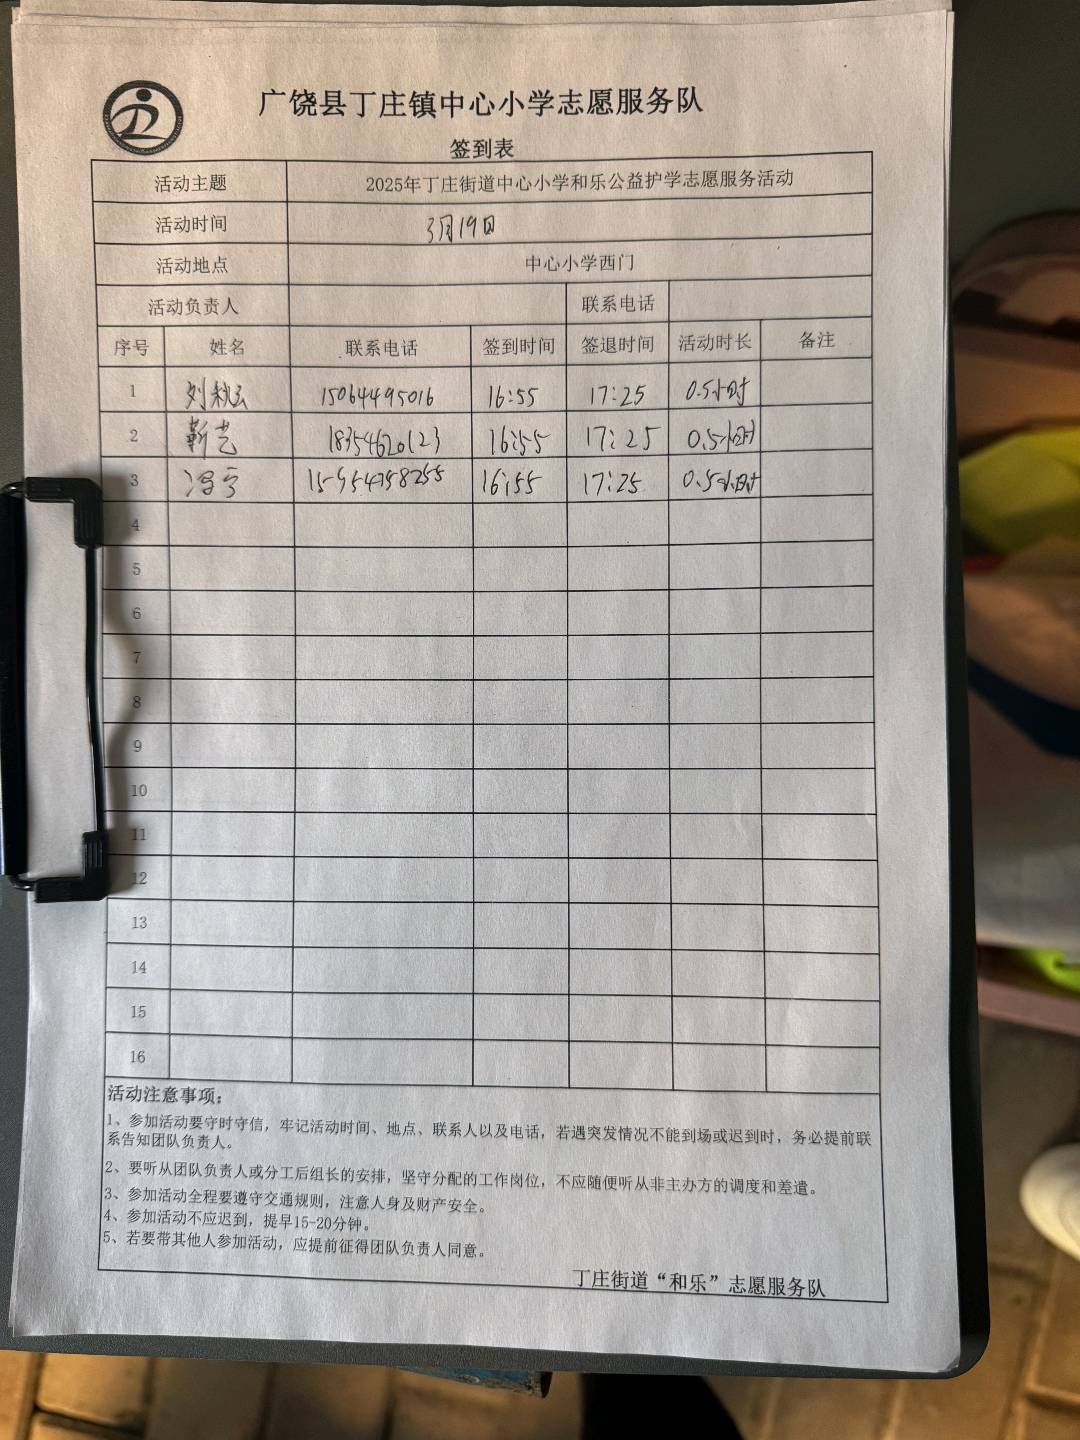 广饶县丁庄镇中心小学志愿服务队
签到表
活动主题 2025年丁庄街道中心小学和乐公益护学志愿服务活动
活动时间 3月19日
活动地点 中心小学西门
活动负责人 联系电话
序号 姓名 联系电话 签到时间 签退时间 活动时长 备注
1 刘秋云 15064495016 16:55 17:25 0.5小时
2 靳艺 18354620123 16:55 17:25 0.5小时
3 16:55 17:25 0.5小时
4
5
6
7
8
9
10
11
12
13
14
15
16
活动注意事项:
1、参加活动要守时守信，牢记活动时间、地点、联系人以及电话，若遇突发情况不能到场或迟到时，务必提前联
系告知团队负责人。
2、要听从团队负责人或分工后组长的安排，坚守分配的工作岗位，不应随便听从非主办方的调度和差遣。
3、参加活动全程要遵守交通规则，注意人身及财产安全。
4、参加活动不应迟到，提早15-20分钟。
5、若要带其他人参加活动，应提前征得团队负责人同意。
丁庄街道“和乐”志愿服务队